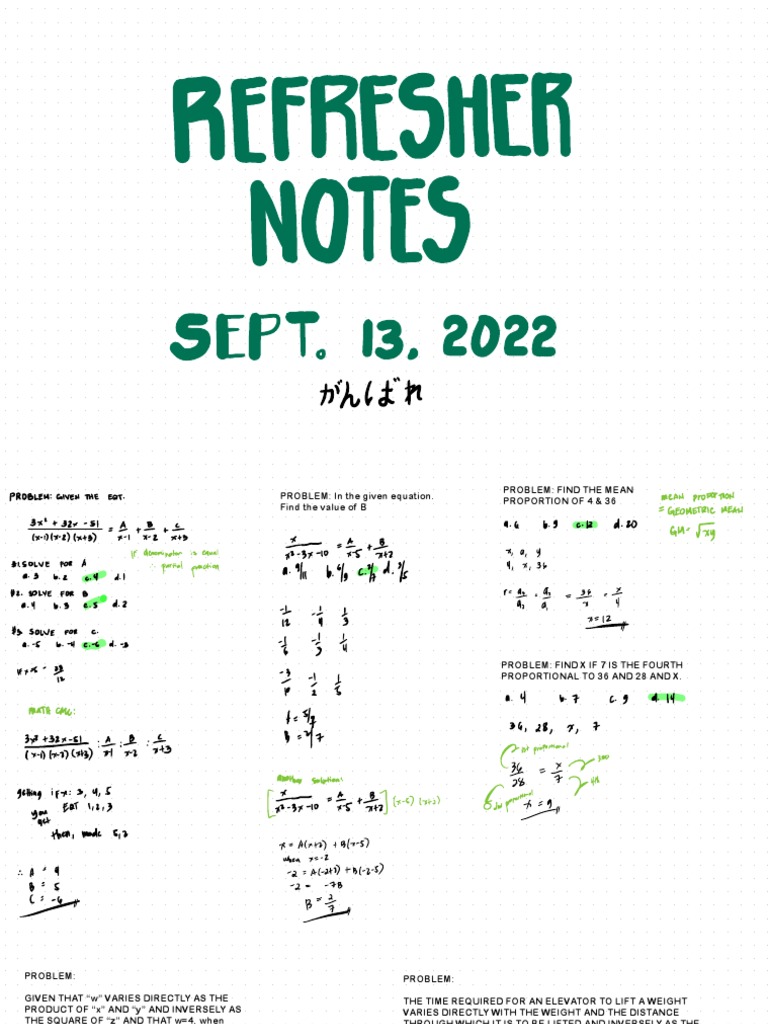 REFRESHER
NOTES
SEPT. 13, 2022
がんばれ
PROBLEM: GIVEN THE EQT.
3x² + 32x - 51 / (x-1)(x-2)(x+3) = A/x-1 + B/x-2 + C/x+3
If denominator is equal
∴ partial fraction
#1. SOLVE FOR A
a. 3 b. 2 c. 4 d. 1
#2. SOLVE FOR B
a. 4 b. 3 c. 5 d. 2
#3. SOLVE FOR C.
a. -5 b. -4 c. -6 d. -3
MATH CALC:
3x² + 32x - 51 / (x-1)(x-2)(x+3) : A/x-1 : B/x-2 : C/x+3
getting if x: 3, 4, 5
you get EQT 1, 2, 3
then, mode 5, 2
∴ A = 4
B = 5
C = -6
PROBLEM: In the given equation.
Find the value of B
x / x²-3x-10 = A/x-5 + B/x+2
b. 6/9 c. 2/7 d. 3/5
-1/12 -1/4 1/3
-1/6 -1/3 1/4
-3/10 -1/2 1/6
A = 5/7
B = 2/7
Another solution:
[x / x²-3x-10 = A/x-5 + B/x+2] (x-5)(x+2)
x = A(x+2) + B(x-5)
when x=-2
-2 = A(-2+2) + B(-2-5)
-2 = -7B
B = 2/7
PROBLEM: FIND THE MEAN
PROPORTION OF 4 & 36
a. 6 b. 9 c. 12 d. 20
MEAN PROPORTION
= GEOMETRIC MEAN
GM = √xy
x, a, y
4, x, 36
r = a₂/a₂ = a₂/a₁ = 36/x = x/4
x = 12
PROBLEM: FIND X IF 7 IS THE FOURTH
PROPORTIONAL TO 36 AND 28 AND X.
a. 4 b. 7 c. 9 d. 14
36, 28, x, 7
1st proportional
36/28 = x/7
3rd
4th
2nd proportional
x = 9
PROBLEM:
GIVEN THAT “w” VARIES DIRECTLY AS THE
PRODUCT OF “x” AND “y” AND INVERSELY AS
THE SQUARE OF “z” AND THAT w=4, when
PROBLEM:
THE TIME REQUIRED FOR AN ELEVATOR TO LIFT A WEIGHT
VARIES DIRECTLY WITH THE WEIGHT AND THE DISTANCE
THROUGH WHICH IT IS TO BE LIFTED AND INVERSELY AS THE